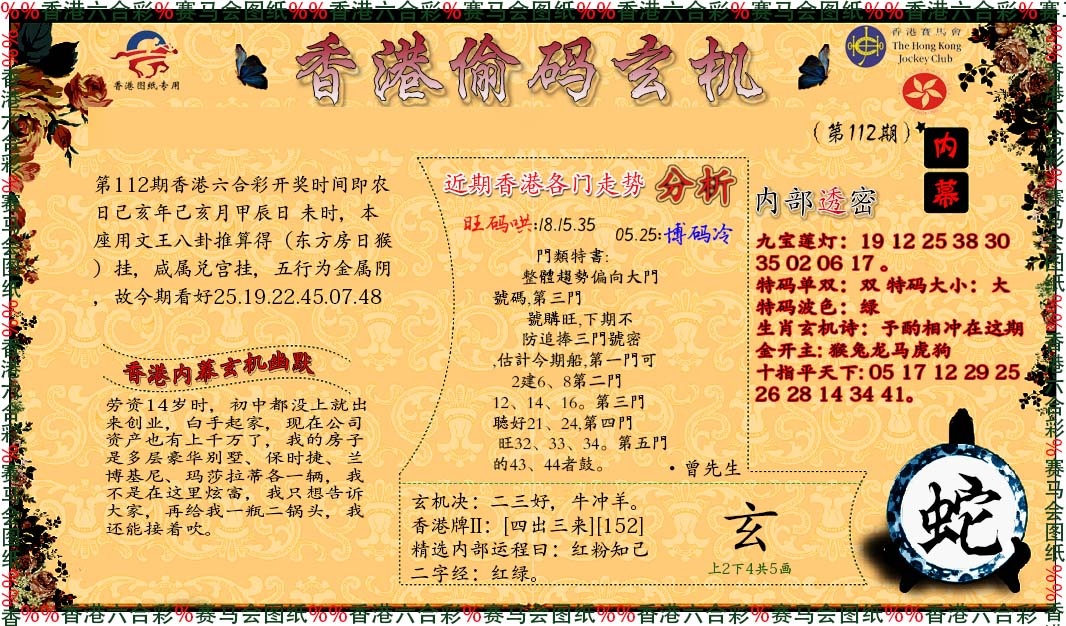 %%香港六合彩%赛马会图纸%%香港六合彩%赛马会图纸%%香港六合彩%赛马会图纸%%香港六合彩%赛马会图纸%%香港六合彩%赛
香港图纸专用
香港偷码玄机
香港賽馬會
The Hong Kong
Jockey Club
（第112期）
内
幕
第112期香港六合彩开奖时间即农
日己亥年己亥月甲辰日 未时，本
座用文王八卦推算得（东方房日猴
）挂，咸属兑宫挂，五行为金属阴
，故今期看好25.19.22.45.07.48
香港内幕玄机幽默
劳资14岁时，初中都没上就出
来创业，白手起家，现在公司
资产也有上千万了，我的房子
是多层豪华别墅、保时捷、兰
博基尼、玛莎拉蒂各一辆，我
不是在这里炫富，我只想告诉
大家，再给我一瓶二锅头，我
还能接着吹。
近期香港各门走势 分析
旺码哄:18.15.35
05.25:博码冷
門類特書:
整體趨勢偏向大門
號碼,第三門
號購旺,下期不
防追捧三門號密
,估計今期船,第一門可
2建6、8第二門
12、14、16。第三門
聽好21、24,第四門
旺32、33、34。第五門
的43、44者鼓。
·曾先生
玄机决：二三好，牛冲羊。
香港牌II：[四出三来][152]
精选内部运程曰：红粉知己
二字经：红绿。
玄
上2下4共5画
内部透密
九宝莲灯：19 12 25 38 30
35 02 06 17 。
特码单双：双 特码大小：大
特码波色：绿
生肖玄机诗：予酌相冲在这期
金开主: 猴兔龙马虎狗
十指平天下: 05 17 12 29 25
26 28 14 34 41。
蛇
香%%香港六合彩%赛马会图纸%%香港六合彩%赛马会图纸%%香港六合彩%赛马会图纸%%香港六合彩%赛马会图纸%%香港六合彩%